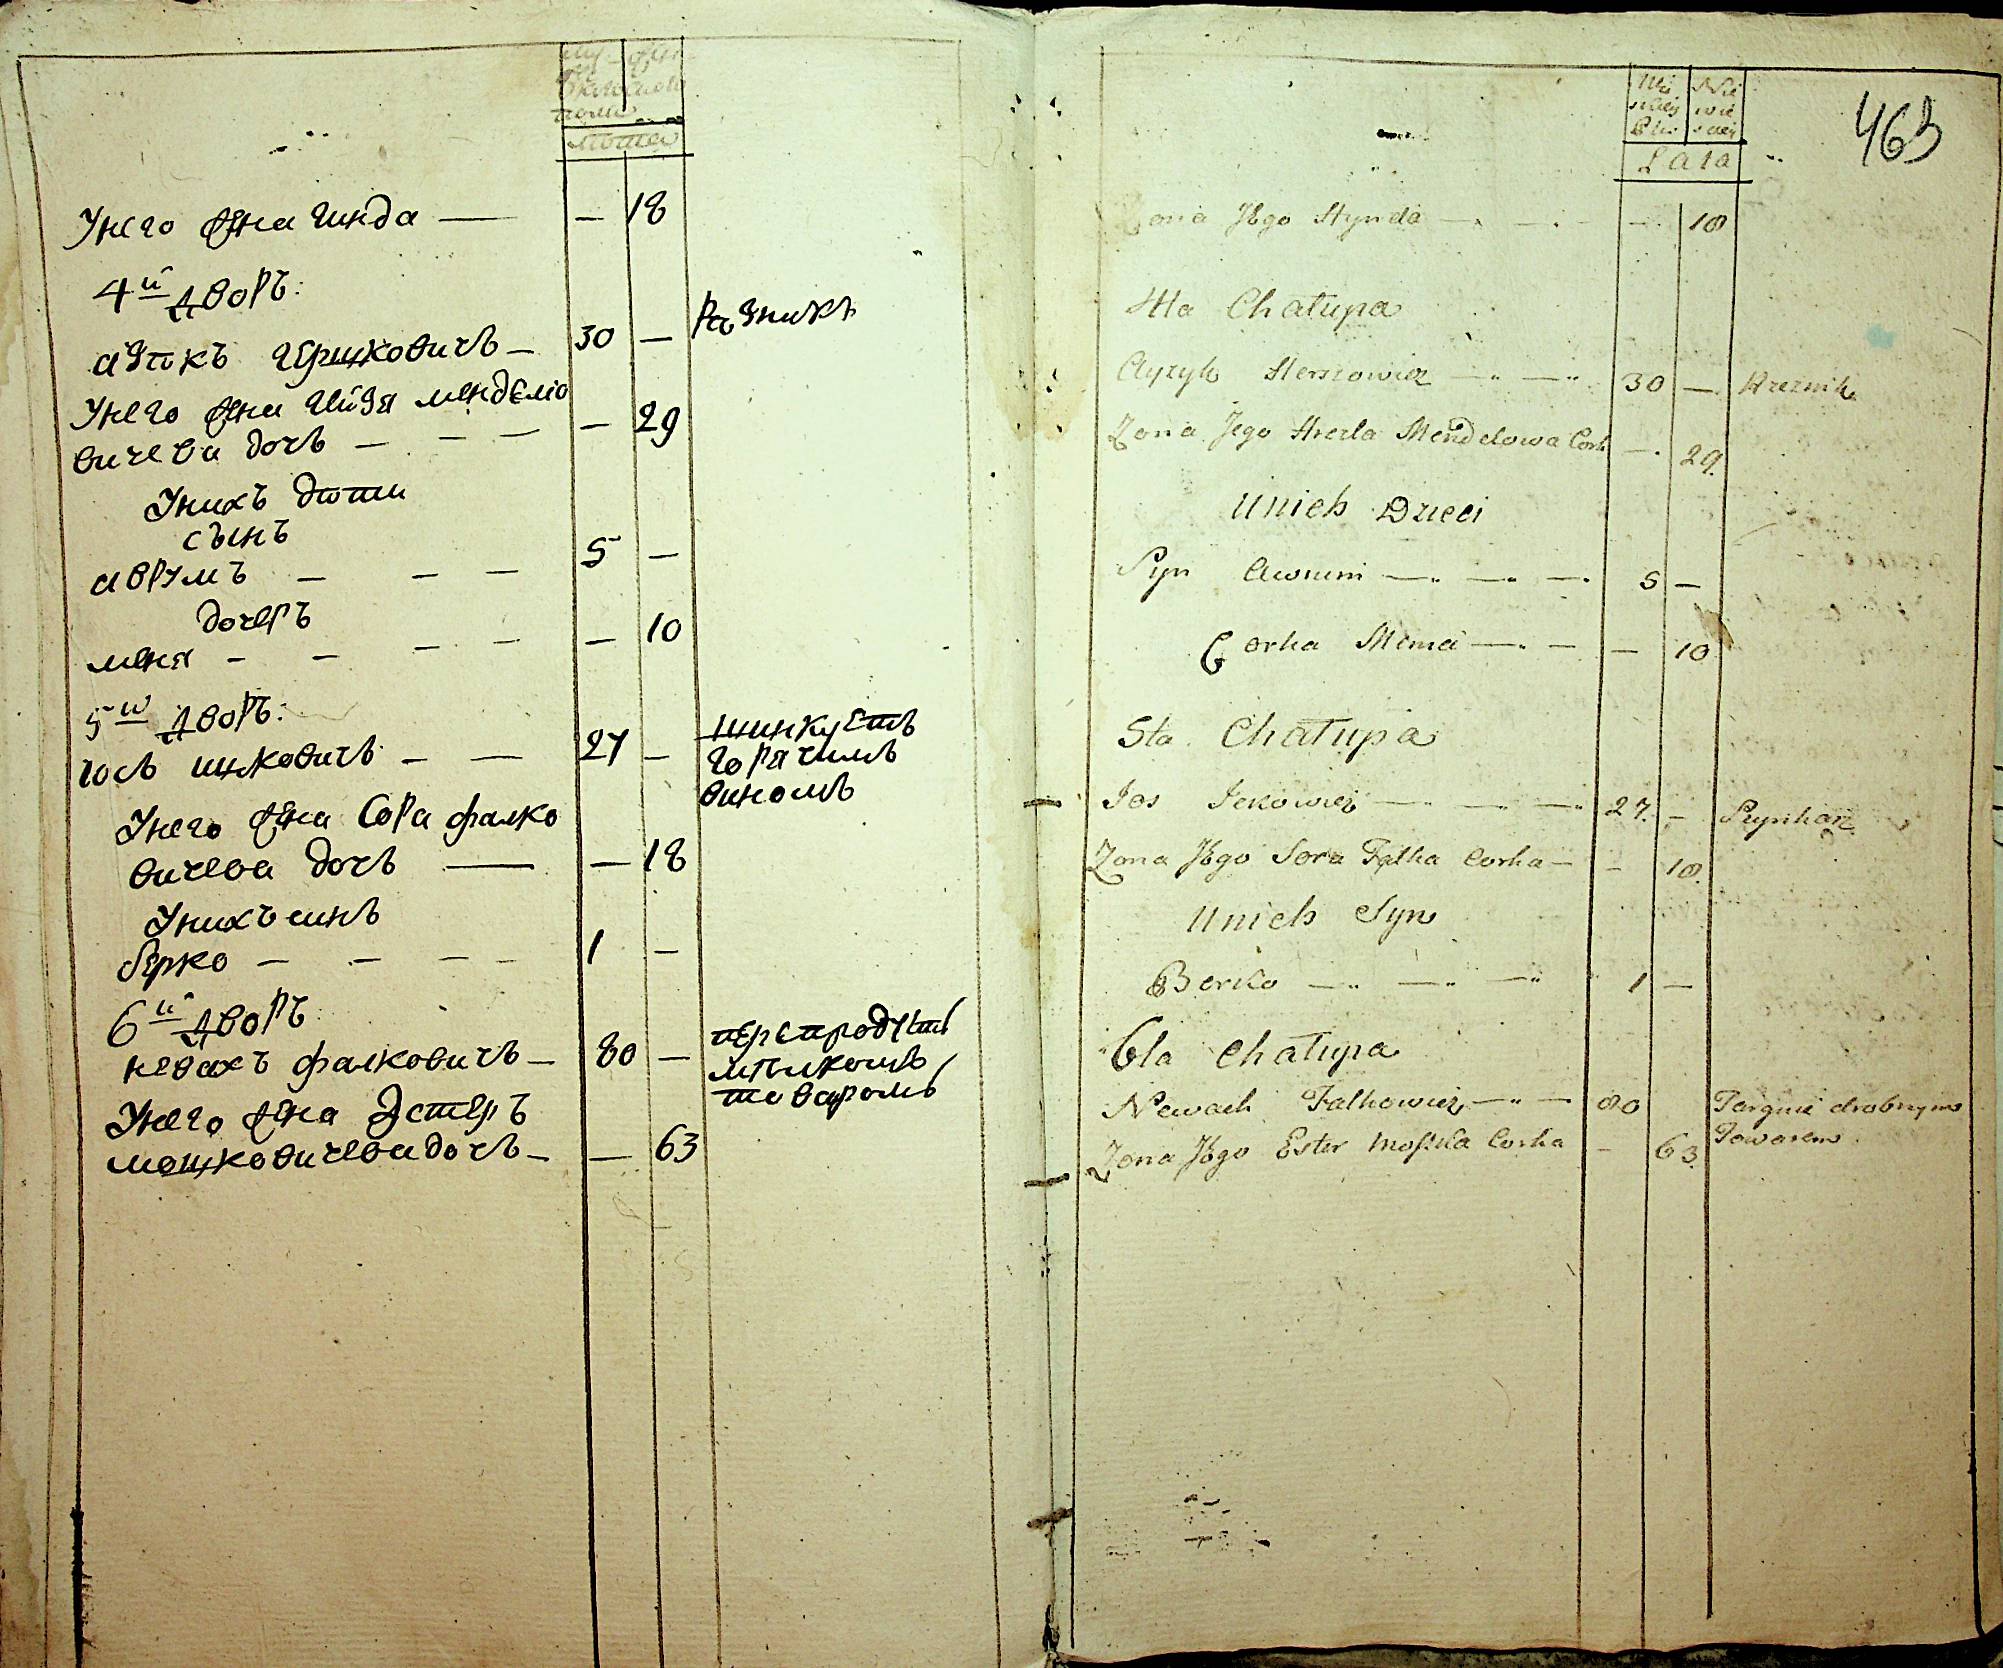 лѣта
У него жена Гинда — — 18
4й дворъ:
Айзикъ Гершковичъ — 30 — Рѣзникъ
У него жена Гейзя Менделіо
вичева дочъ — — — — 29
У нихъ дѣти
сынъ
Аврумъ — — — 5 —
дочеръ
Меня — — — — — 10
5й дворъ:
Іось Ицковичъ — — 27 — шинкуетъ
горячимъ
виномъ
У него жена Сора Фалко
вичева дочъ — — 18
У нихъ синъ
Берко — — — — 1 —
6й дворъ
Невахъ Фалковичъ — 80 — перепродуетъ
мѣлкомъ
товаромъ
У него жена Эстеръ
Мошковичева дочъ — — 63
463
Lata
Zona Jego Hynda — — 18
4ta Chałupa
Ayzyk Herszowicz — — 30 — Rzeznik
Zona Jego Hiezla Mendelowa Cork — 29.
Unich Dzieci
Syn Awrum — — — 5 —
Corka Mema — — — 10
5ta Chałupa
Jos Ickowicz — — — 27. — Szynkarz
Zona Jego Sora Falka Corka — — 18.
Unich Syn
Berko — — — 1 —
6ta Chałupa
Newach Falkowicz — — 80 Targuie drobnym
Towarem
Zona Jego Ester Moszka Corka — 63.